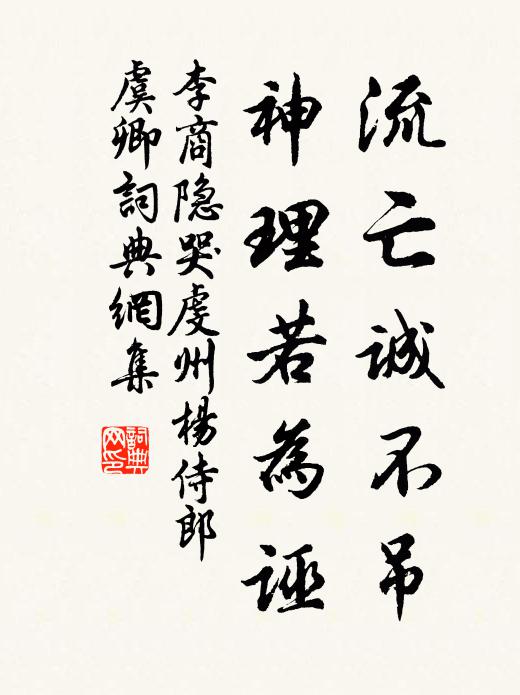 流亡誠不吊
神理若為誣
李商隐哭虔州楊侍郎
虞卿詞典網集
詞典
网印